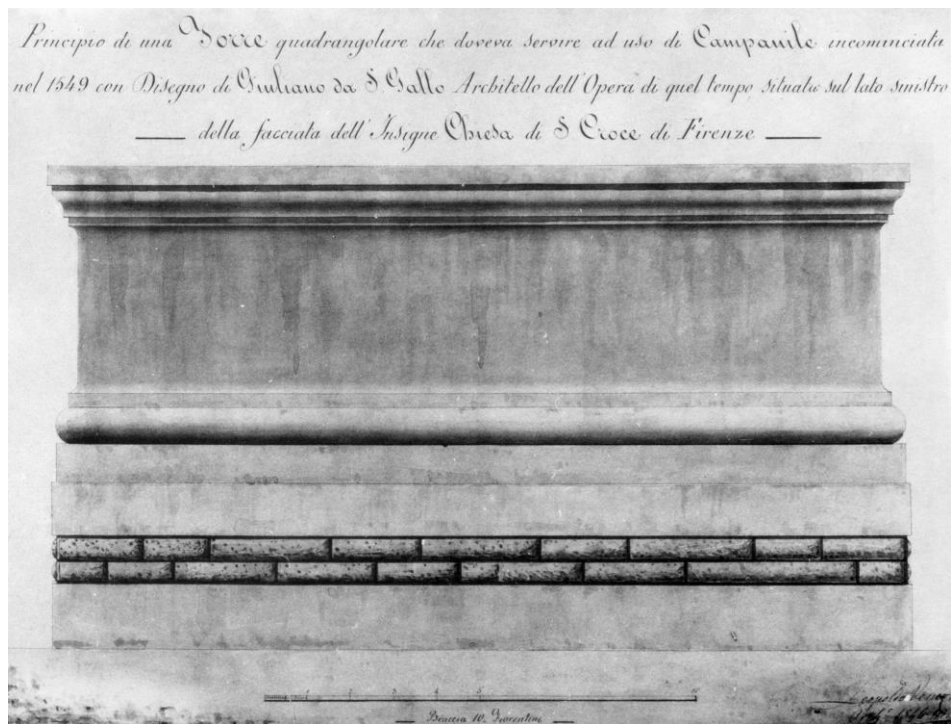 Principio di una Torre quadrangolare che doveva servire ad uso di Campanile incominciata
nel 1549 con Disegno di Giuliano da S. Gallo Architetto dell'Opera di quel tempo situata sul lato sinistro
della facciata dell'Insigne Chiesa di S. Croce di Firenze
Braccia 10. Fiorentine